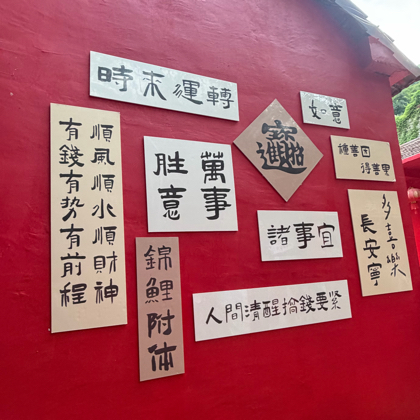 時來運轉
如意
順風順水順財神
有錢有势有前程
萬事
胜意
招財進寶
種善因
得善果
諸事宜
多喜樂
長安寧
錦鯉附体
人間清醒搞錢要緊